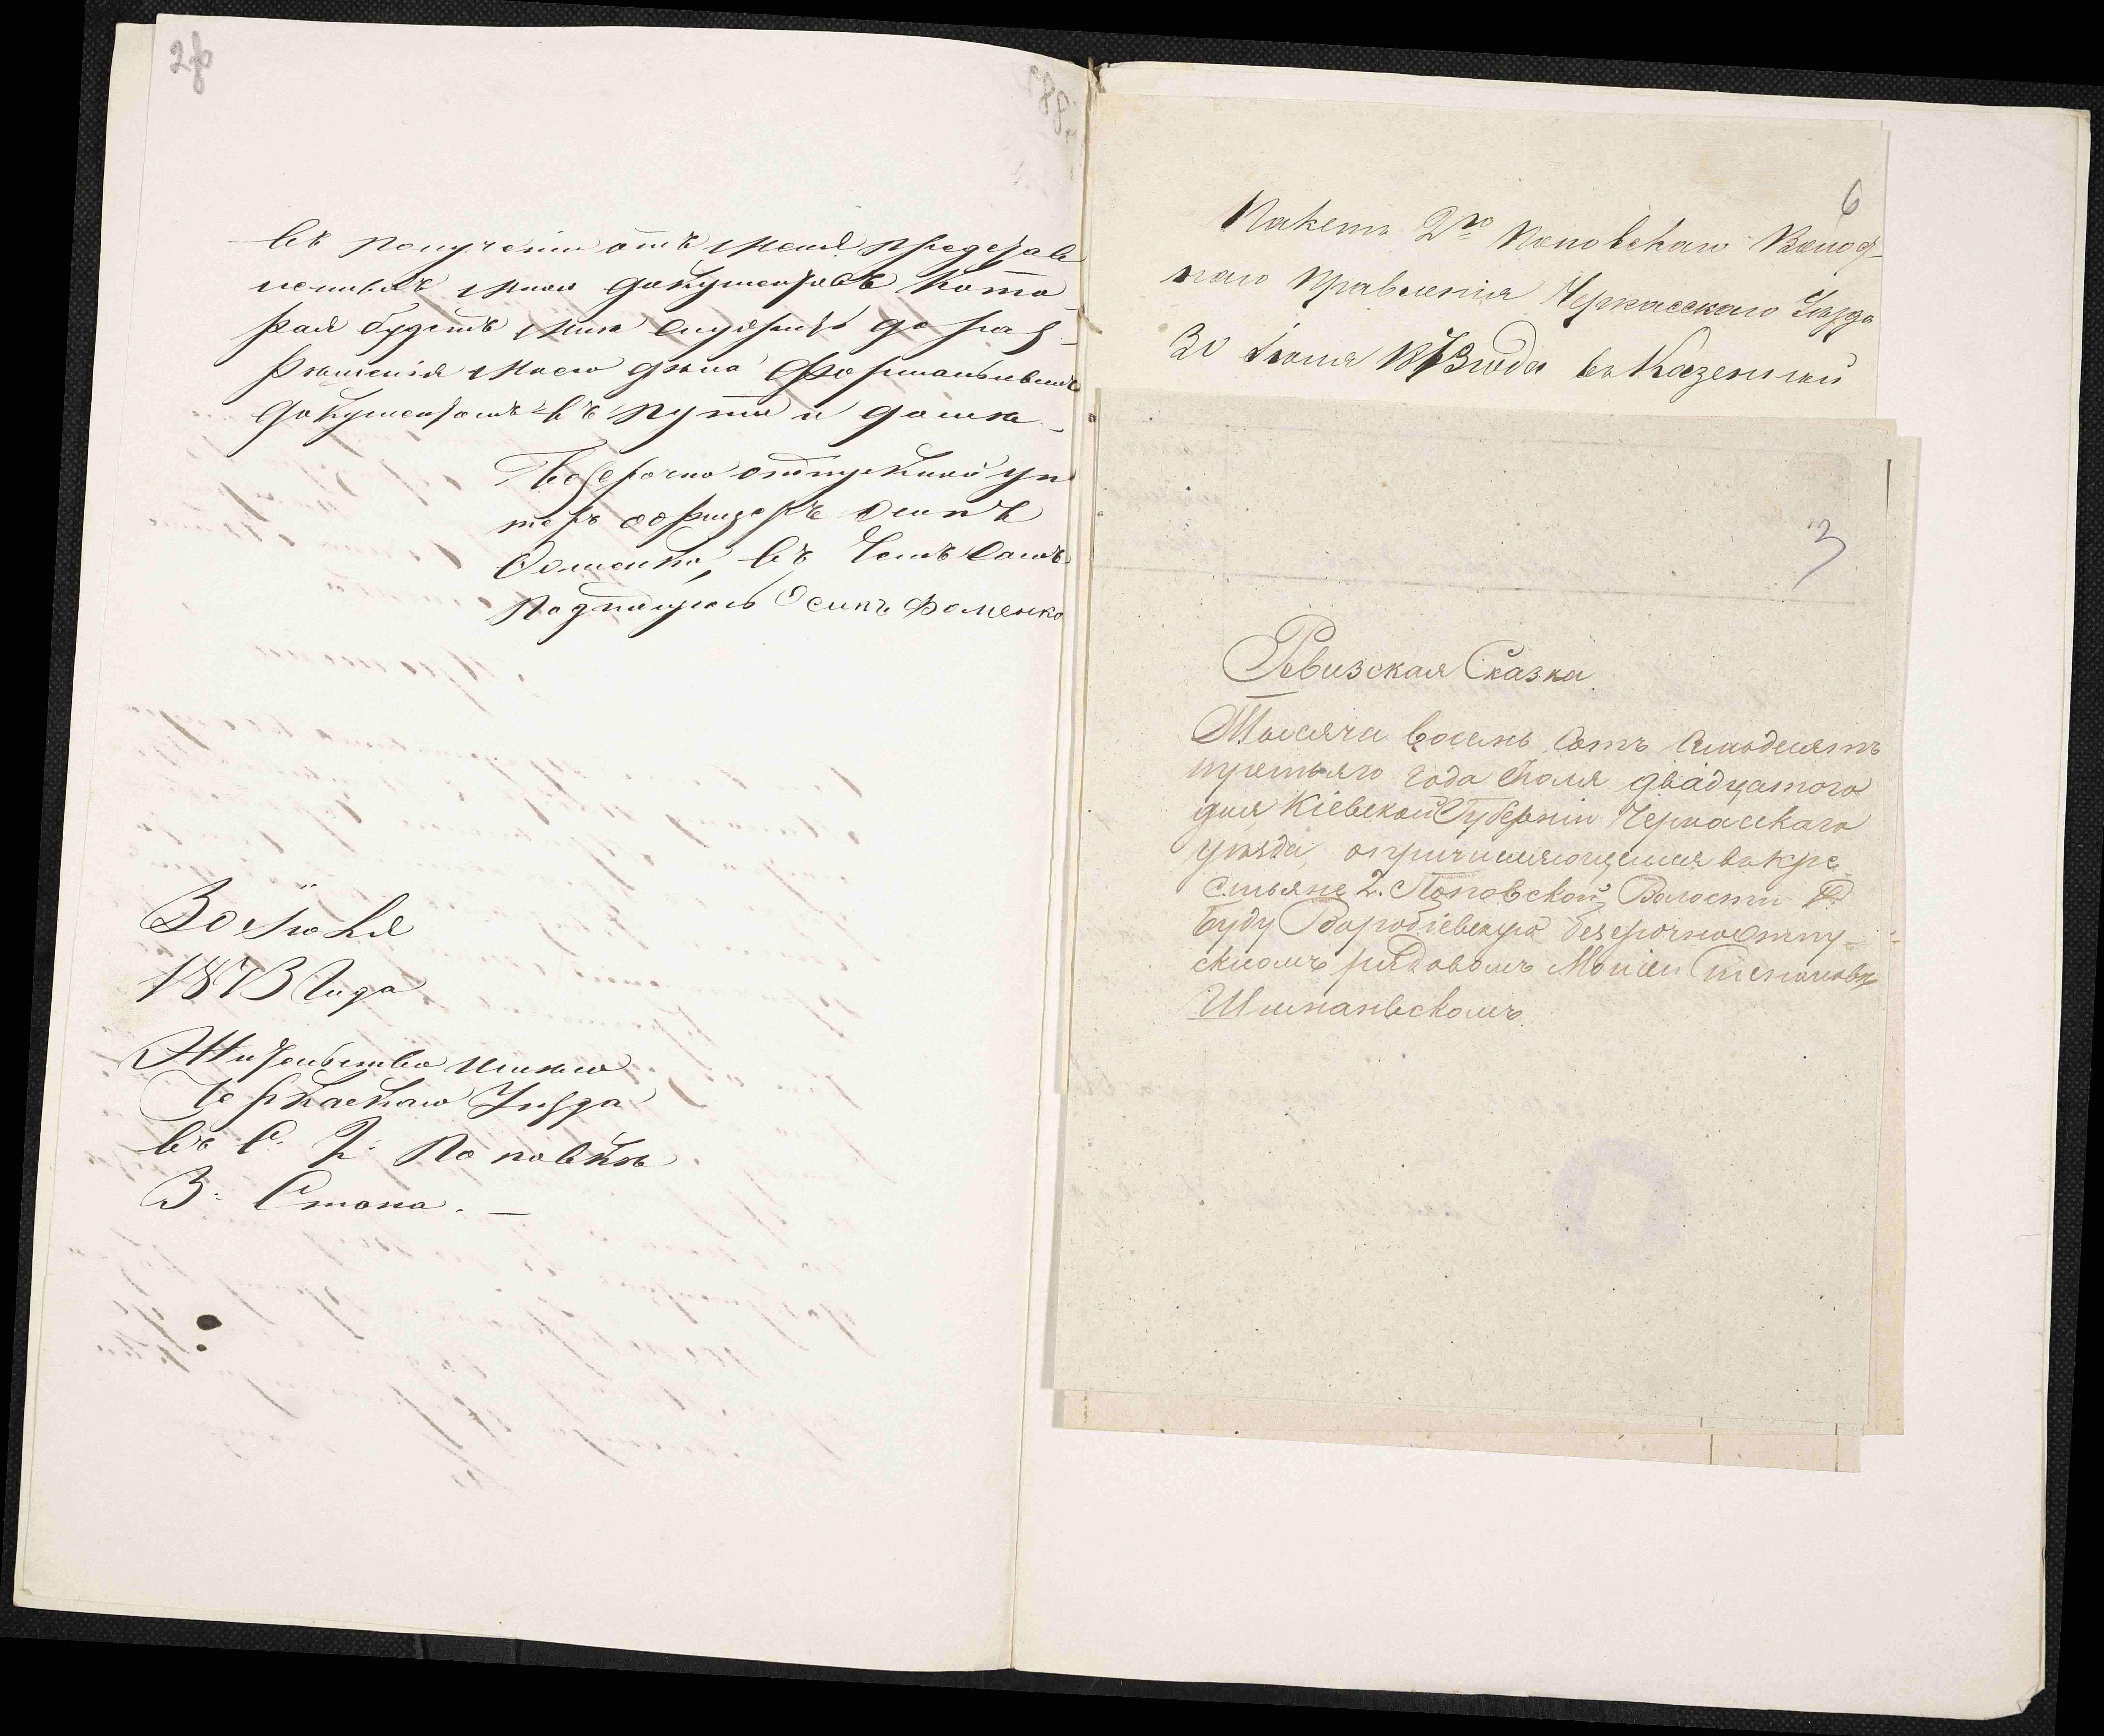 2об
въ получении отъ меня представ
ленныхъ мною документовъ кото
рая будетъ мнѣ служить до раз-
рѣшенія моего дѣла формальнымъ
документомъ въ пути и дома.-
Безсрочно отпускной ун
теръ офицеръ Осипъ
Фоменко, въ чемъ самъ
подпишусь Осипъ Фоменко
30 Іюня
1873 Года
Жительство имею
Черкаскаго Уѣзда
въ С. 2: Поповкѣ
3: Стана. —
6
Пакетъ 2го Поповскаго Волост-
наго Правленія Черкасскаго Уѣзда
30 Іюня 1873 года въ Казенный
3
Ревизская Сказка
Тысяча восемь сотъ семдесятъ
третьяго года Іюля двадцатого
дня Кіевской Губерніи Черкасскаго
уѣзда, о причисляющемся въ кре
стьяне 2. Поповской Волости Д.
Буду Воробіевскую безсрочно отпу-
скномъ рядовомъ Моисеи Степановѣ